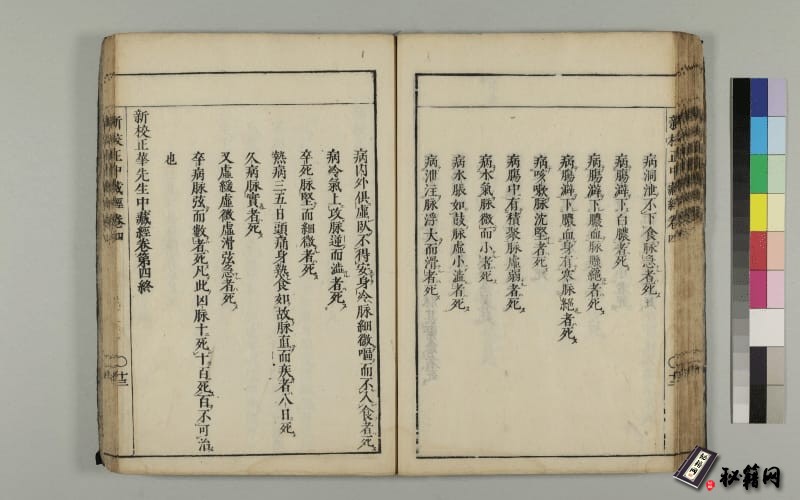 病洞泄不下食脉急者死
病腸澼下白膿者死
病腸澼下膿血脉懸絕者死
病腸澼下膿血身有寒脉絕者死
病咳嗽脉沈堅者死
病腸中有積聚脉虛弱者死
病水氣脉微而小者死
病水脹如鼓脉虛小澁者死
病泄注脉浮大而滑者死
病內外俱虛臥不得安身冷脉細微嘔而不入食者死
病冷氣上攻脉逆而澁者死
卒死脉堅而細微者死
熱病三五日頭痛身熱食如故脉直而疾者八日死
久病脉實者死
又虛緩虛微虛滑弦急者死
卒病脉弦而數者死凡此凶脉十死十百死百不可治
也
新校正華先生中藏經卷第四終
新校正中藏經 卷四
十三
新校正中藏經 卷四
十二
秘籍网